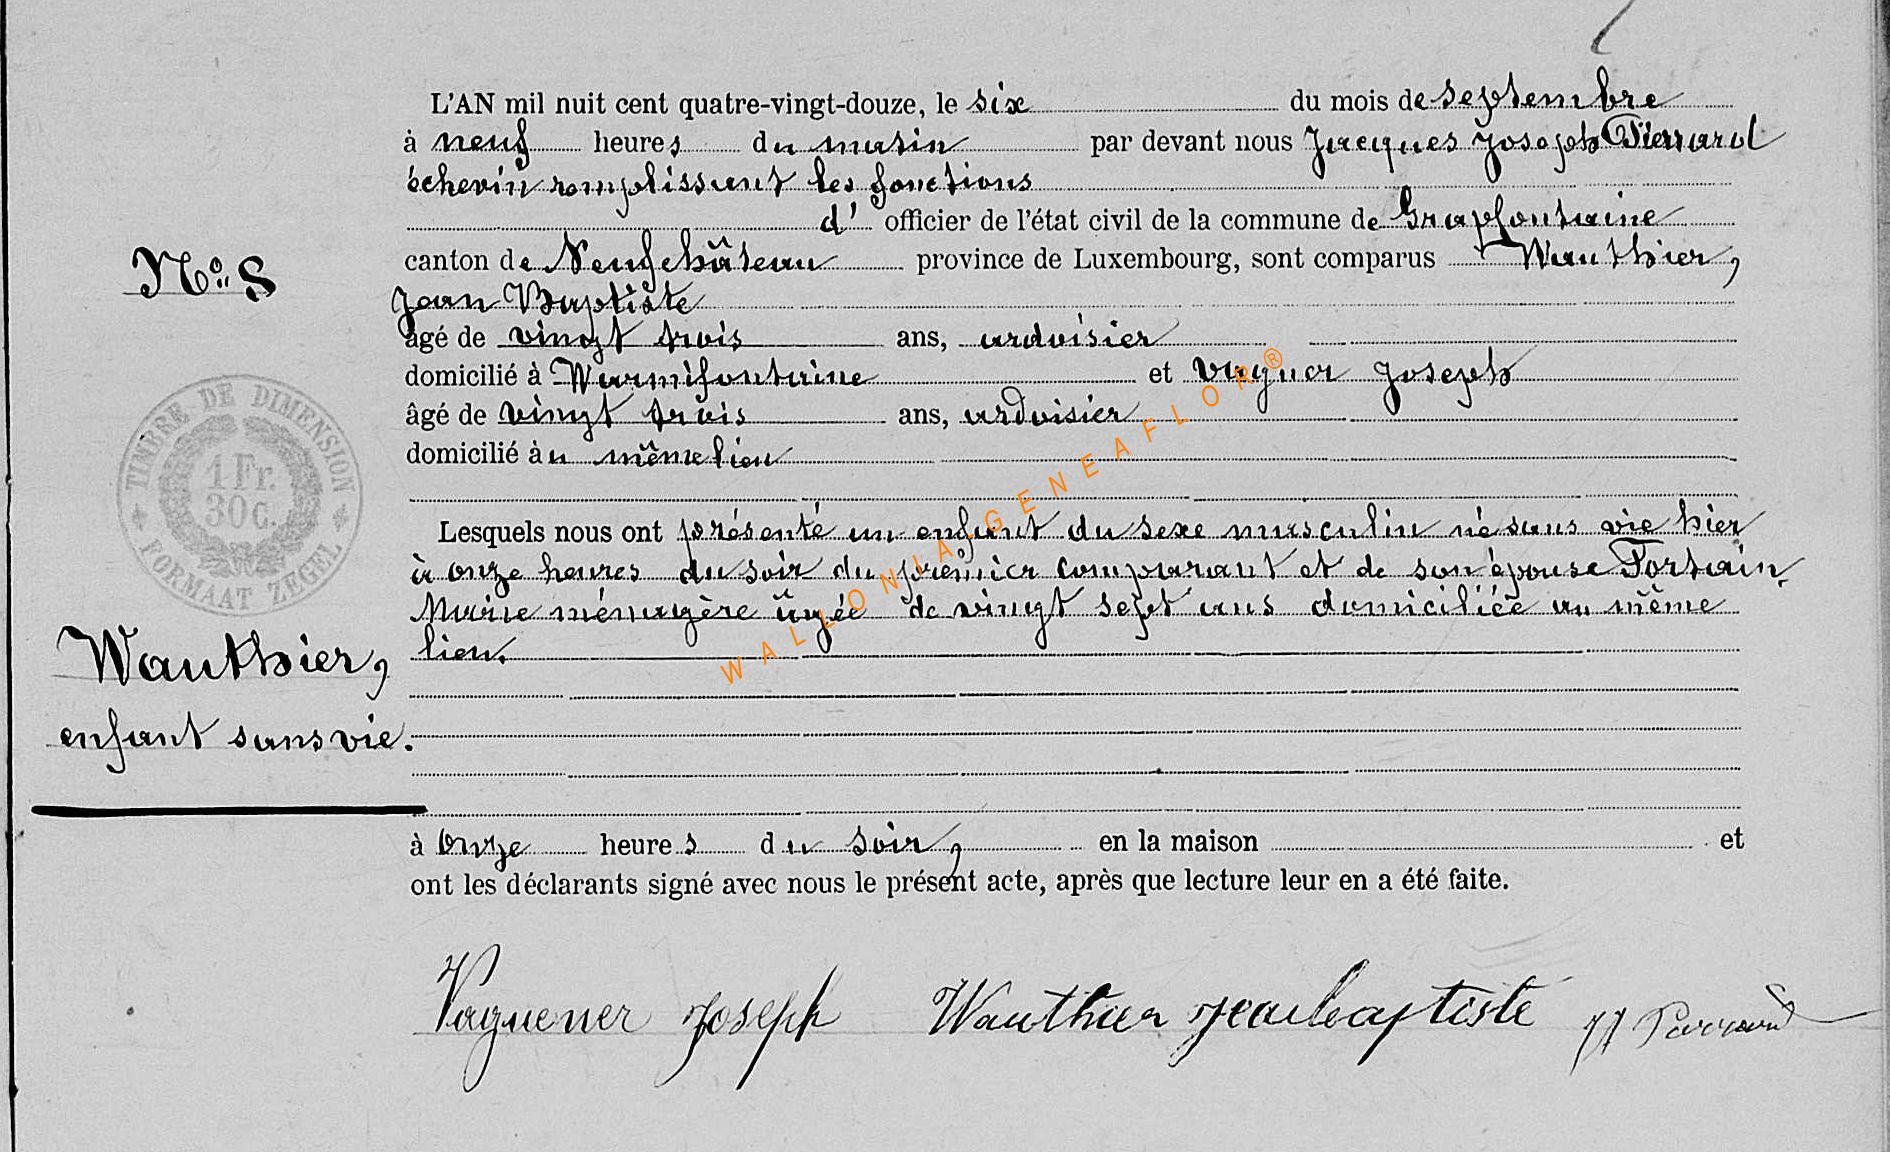 L'AN mil huit cent quatre-vingt-douze, le six du mois de septembre
à neuf heures du matin par devant nous Jacques Joseph Pierrard
échevin remplissant les fonctions
d' officier de l'état civil de la commune de Grapfontaine
N° 8
canton de Neufchâteau province de Luxembourg, sont comparus Wauthier,
Jean Baptiste
âgé de vingt trois ans, ardoisier
domicilié à Warmifontaine et Vaguer Joseph
âgé de vingt trois ans, ardoisier
domicilié au même lieu
TIMBRE DE DIMENSION
1 Fr.
30 C.
FORMAAT ZEGEL
Lesquels nous ont présenté un enfant du sexe masculin né sans vie hier
à onze heures du soir du premier comparant et de son épouse Fortain,
Marie ménagère âgée de vingt sept ans domiciliée au même
lieu.
Wauthier,
enfant sans vie.
à onze heures du soir, en la maison et
ont les déclarants signé avec nous le présent acte, après que lecture leur en a été faite.
Vaguener Joseph Wauthier jean baptiste JJ Pierrard
WALLONIA GENEAFLOR®